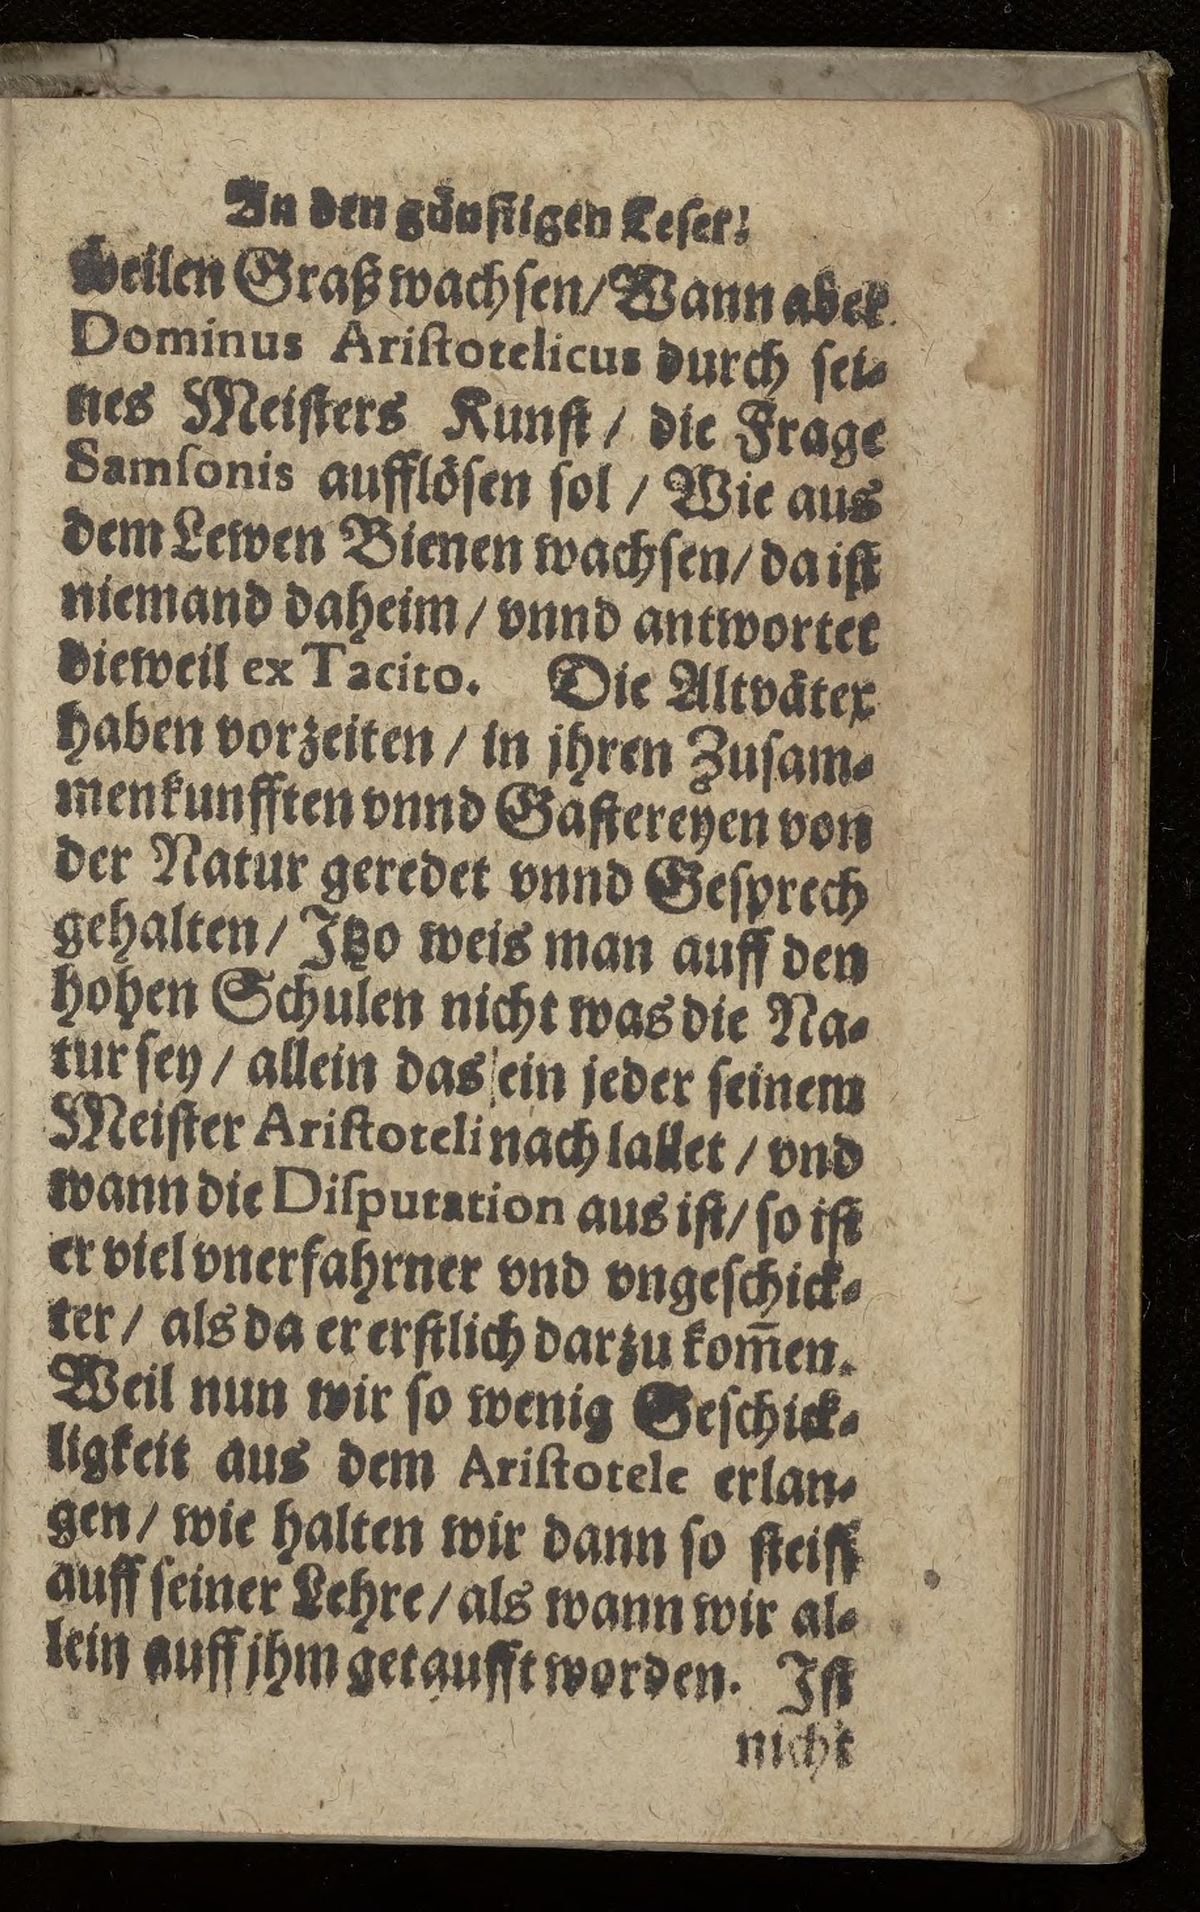 An den günstigen Leser.
weilen Graß wachsen/ Wann aber
Dominus Aristotelicus durch sei-
nes Meisters Kunst / die Frage
Samsonis aufflösen sol / Wie aus
dem Lewen Bienen wachsen/ da ist
niemand daheim / vnnd antwortet
dieweil ex Tacito. Die Altväter
haben vorzeiten / in jhren Zusam-
menkunfften vnnd Gastereyen von
der Natur geredet vnnd Gesprech
gehalten / Jtzo weis man auff den
hohen Schulen nicht was die Na-
tur sey / allein das ein jeder seinem
Meister Aristoteli nach lallet / vnd
wann die Disputation aus ist/ so ist
er viel vnerfahrner vnd vngeschick-
ter / als da er erstlich darzu kom̅en.
Weil nun wir so wenig Geschick-
ligkeit aus dem Aristotele erlan-
gen / wie halten wir dann so steiff
auff seiner Lehre / als wann wir al-
lein auff jhm getaufft worden. Jst
nicht